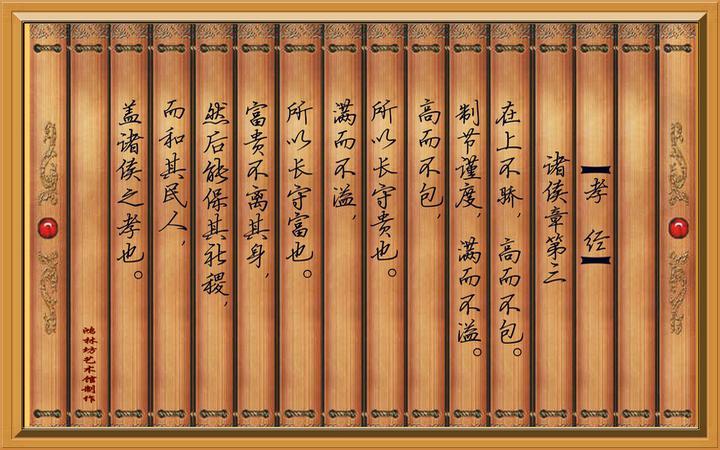 【孝经】
诸侯章第三
在上不骄，高而不包。
制节谨度，满而不溢。
高而不包，
所以长守贵也。
满而不溢，
所以长守富也。
富贵不离其身，
然后能保其社稷，
而和其民人，
盖诸侯之孝也。
鸿林坊艺术馆制作